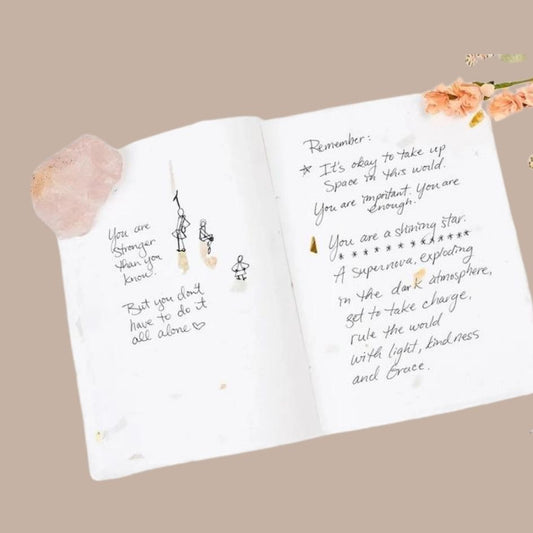 You are
Stronger
than you
know.
But you don't
have to do it
all alone ♡
Remember:
* It's okay to take up
Space in this world.
You are important. You are
enough.
You are a shining star.
* * * * * * * * * * * * *
A Supernova, exploding
in the dark atmosphere,
set to take charge,
rule the world
with light, kindness
and Grace.